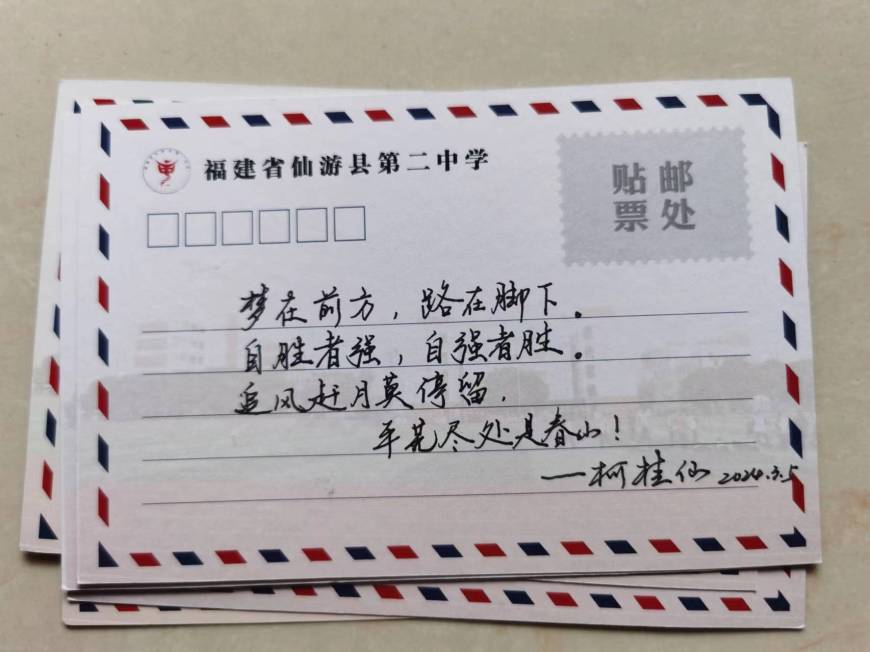 福建省仙游县第二中学
贴邮
票处
梦在前方，路在脚下。
自胜者强，自强者胜。
追风赶月莫停留，
平芜尽处是春山！
——柯桂仙 2024.3.5